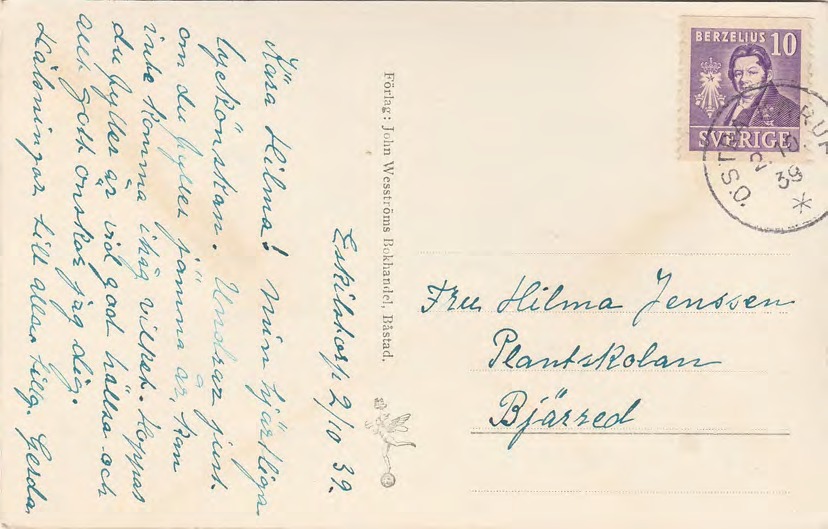 Eskilstorp 2/10 39.
Kära Hilma! Min hjärtliga
lyckönskan. Undrar just
om du fyller jämna år, kan
inte komma ihåg vilket. Hoppas
du fyller år vid god hälsa och
allt gott önskar jag dig.
Hälsningar till alla. Gerda.
Förlag: John Wesströms Bokhandel, Båstad.
BERZELIUS 10
SVERIGE
2.10
39
Fru Hilma Jenssen
Plantskolan
Bjärred